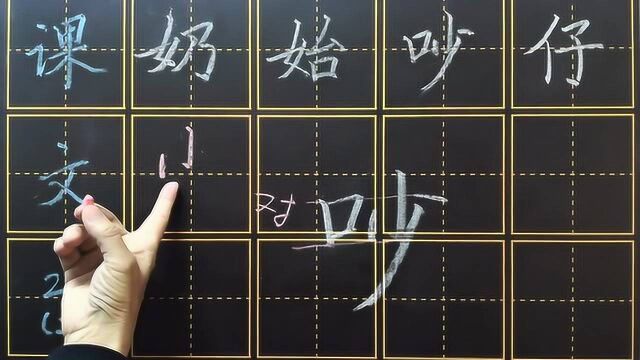 课奶始吵仔
文 对 吵
2